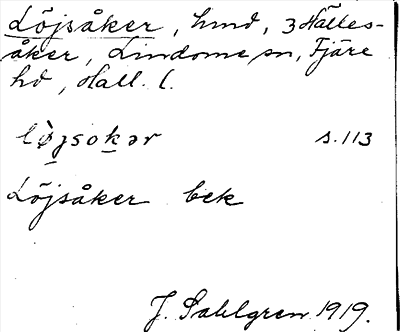 Löjsåker, hmd, 3 Hälles-
åker, Lindome sn, Fjäre
hd, Hall. l.
lø̀jsokər s. 113
Löjsåker bek
J. Sahlgren 1919.